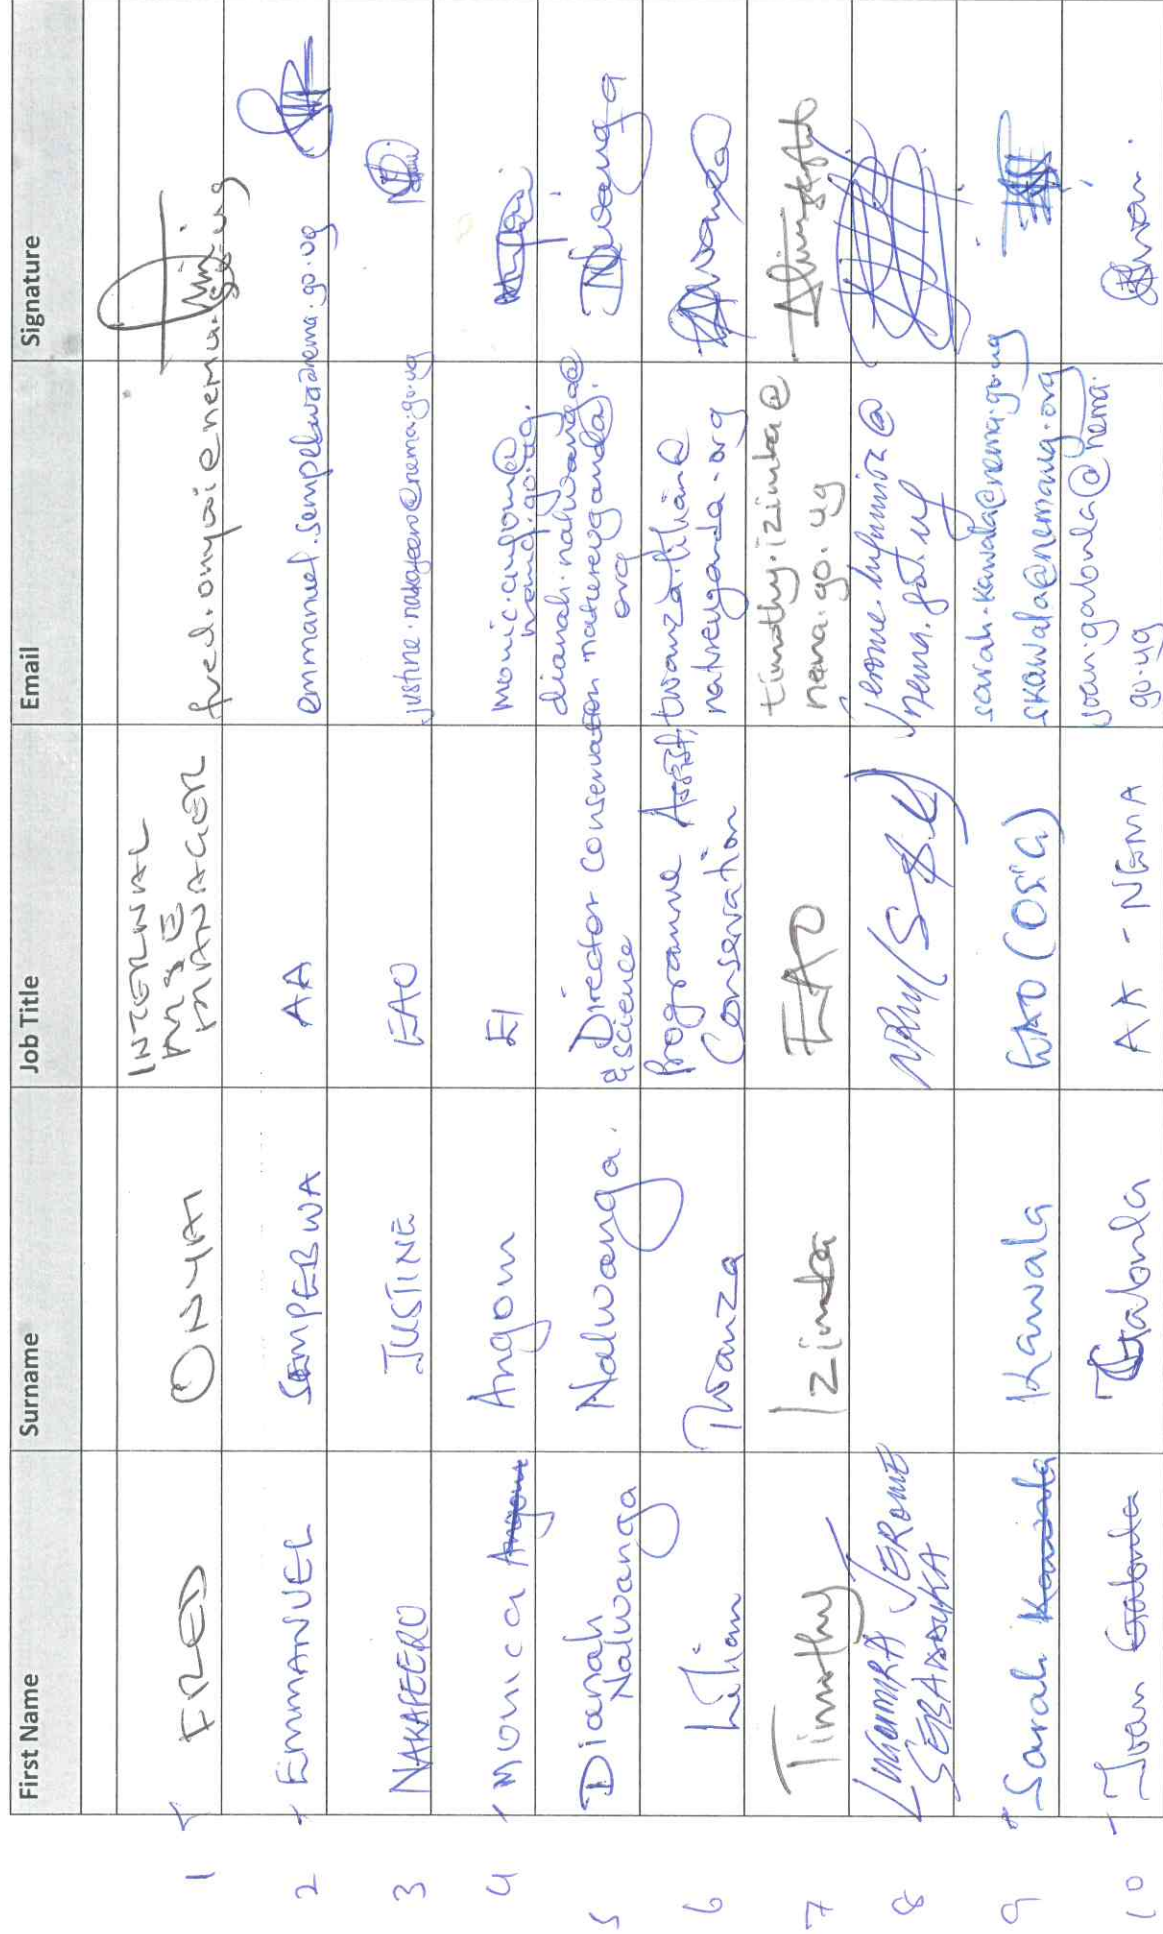 First Name Surname Job Title Email Signature
1 FRED ONYAI INTERNAL M & E MANAGER fred.onyai@nema.go.ug
2 EMMANUEL SEMPEBWA AA emmanuel.sempebwa@nema.go.ug
3 NAKAFEERO JUSTINE EAO justine.nakafeero@nema.go.ug
4 Monica Angom Angom EI monic.angom@
nema.go.ug.
5 Dianah Nalwanga Nalwanga. Director Conservation & science dianah.nalwanga@
natureuganda.
org Nalwanga
6 Lilian Twanza Programme Assist, Conservation twanza.lilian@
natureuganda.org
7 Timothy Izimba EAO timothy.izimba@
nema.go.ug
8 LUGUMIRA JEROME SEBADDUKA jerome.lugumira@
nema.go.ug
9 Sarah Kawala Kawala EAO sarah.kawala@nema.go.ug
skawala@nemaug.org
10 Joan Gabula Gabula AA - NEMA joan.gabula@nema.
go.ug